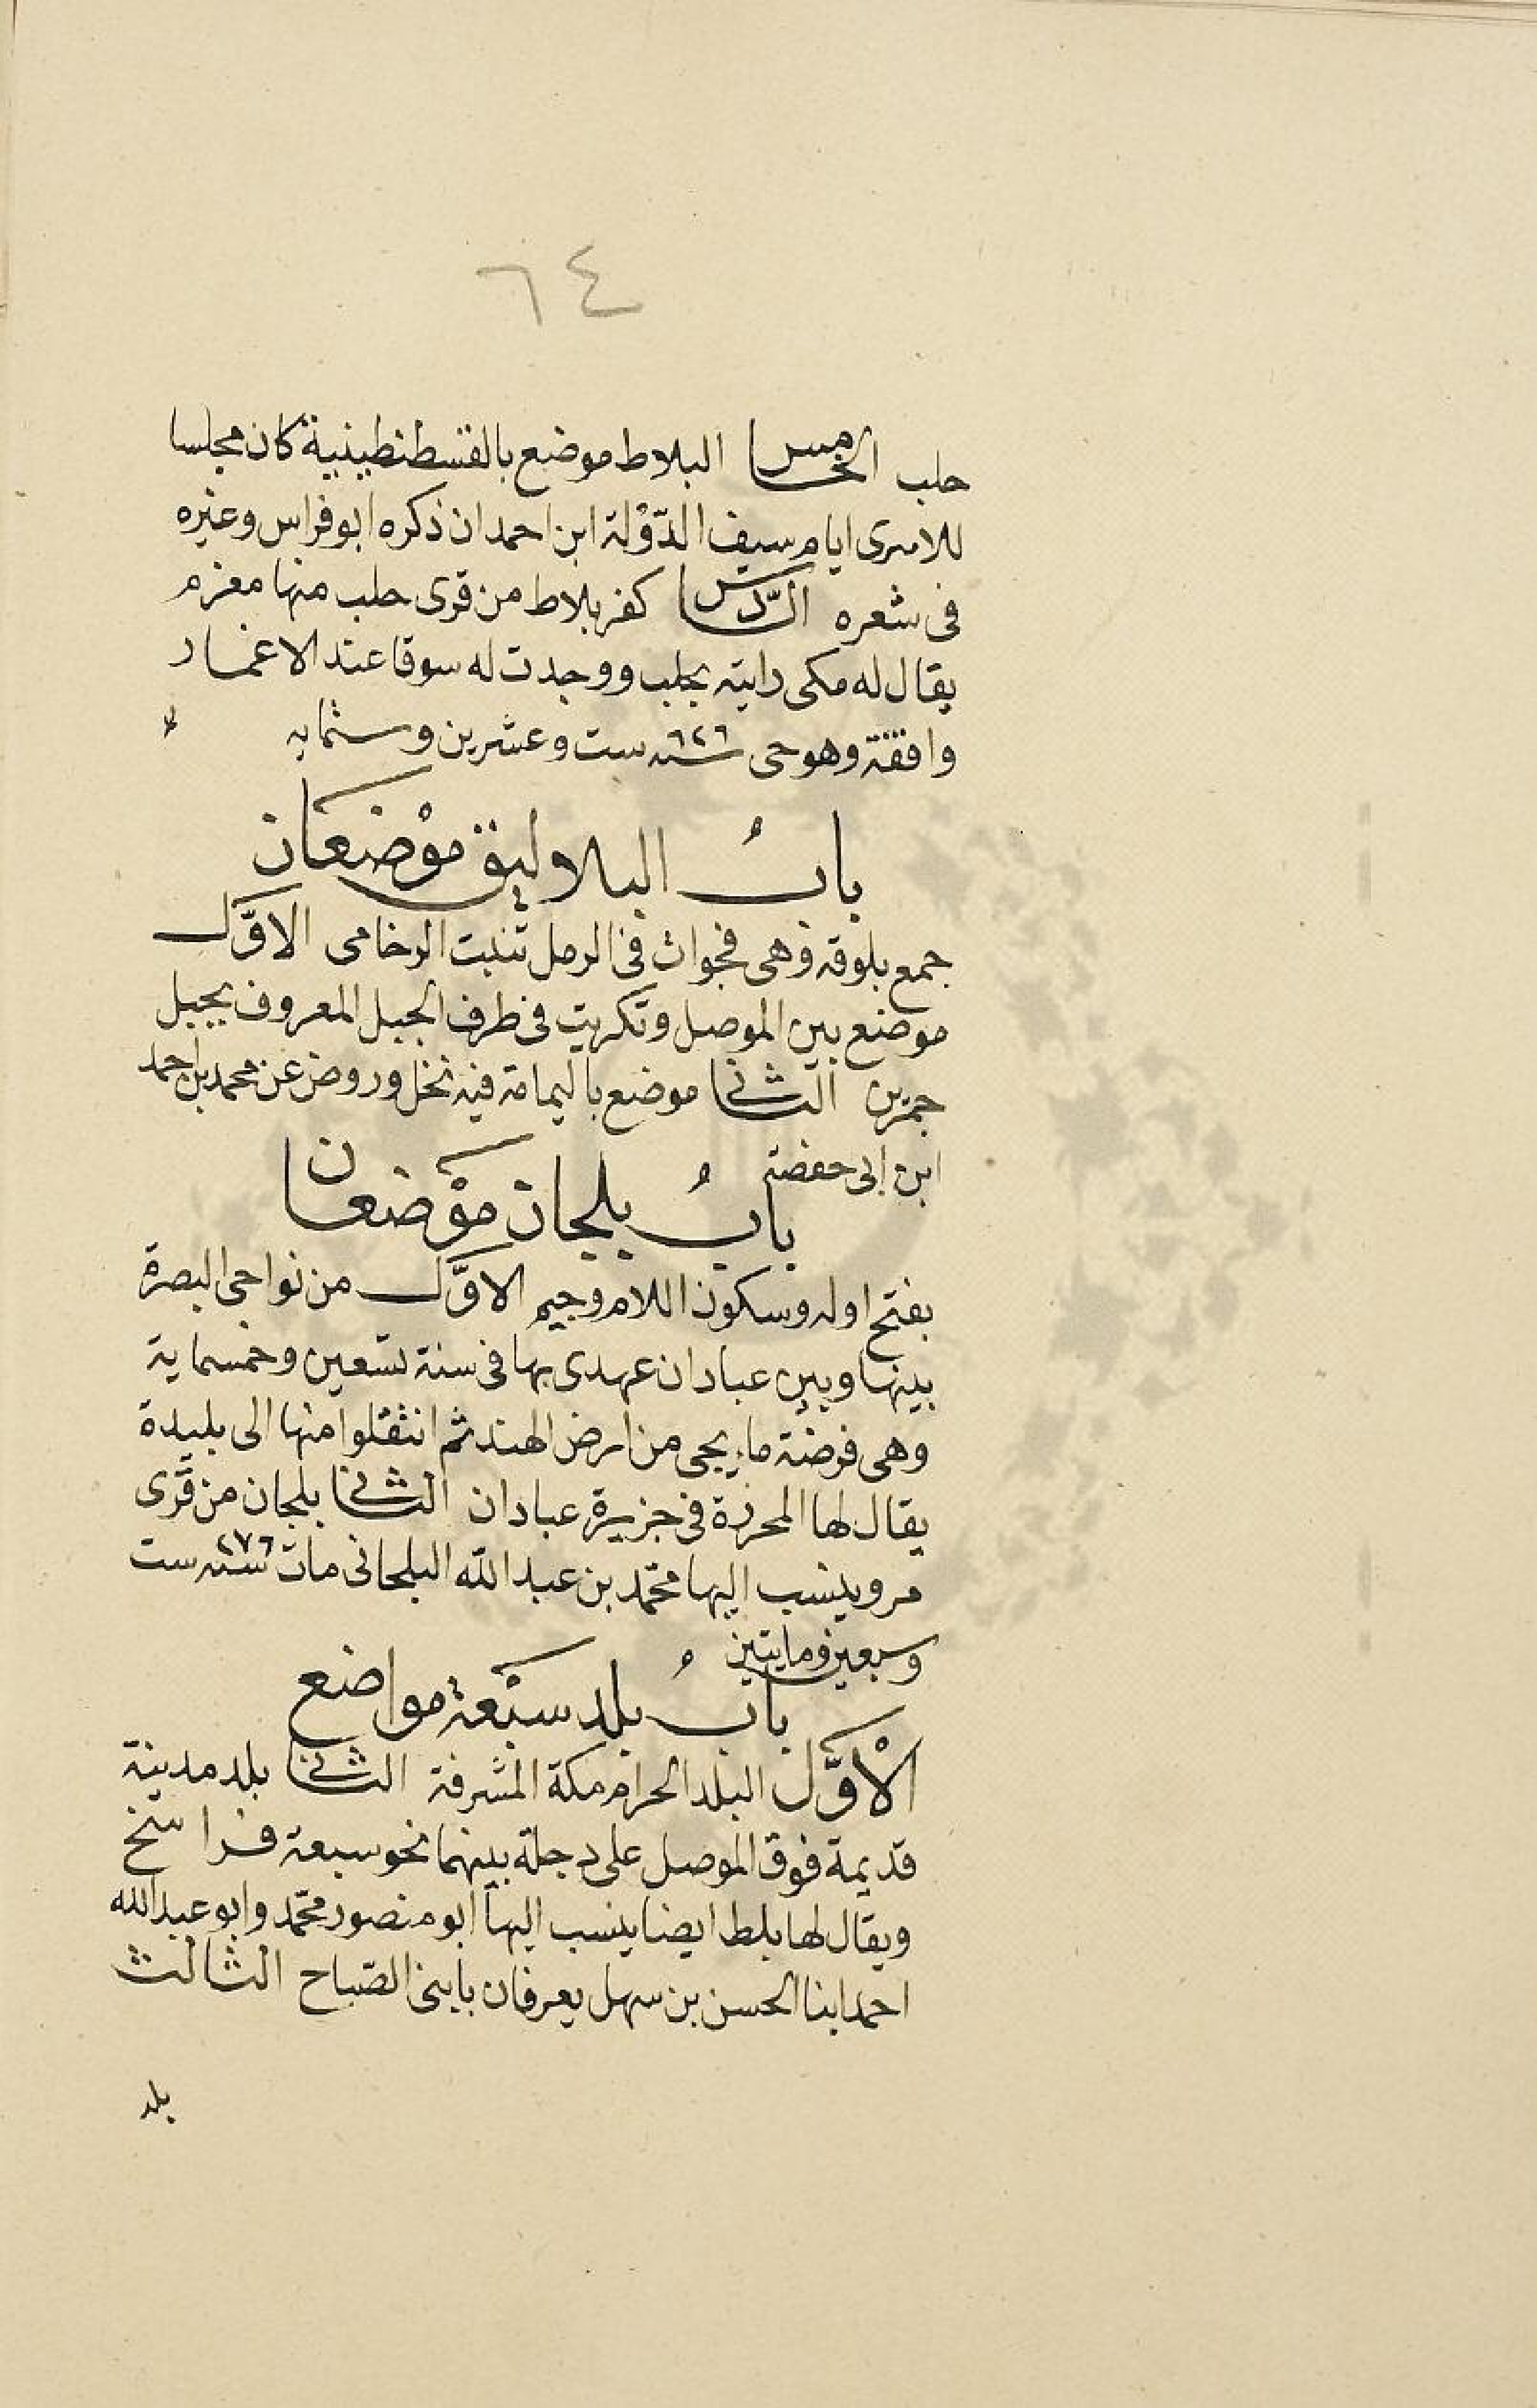 ٦٤
حلب الخامس البلاط موضع بالقسطنطينية كان مجلسا
للاسرى ايام سيف الدّوْلة ابن احمدان ذكره ابو فراس وغيره
فى شعره السّادس كفر بلاط من قرى حلب منها مغزم
يقال له مكى رايته بحلب ووجدت له سوقا عند الاغمار
وافقته وهو حى سنه ٦٢٦ ست وعشرين وستمايه
بابُ البلاليق موْضعَان
جمع بلوقه وهى فجوات فى الرمل تنبت الرخامى الاوّل
موضع بين الموصل وتكريت فى طرف الجبل المعروف بجبل
حمرين الثانى موضع باليمامة فيه نخل وروض عن محمد بن احمد
ابن ابى حفصة
بابُ بلجان موْضعان
بفتح اوله وسكون اللام وجيم الاوّل من نواحى البصرة
بينها وبين عبادان عهدى بها فى سنة تسعين وخمسماية
وهى فرضة ما يجى من ارض الهند ثم انتقلوا منها الى بليدة
يقال لها المحرزة فى جزيرة عبادان الثانى بلجان من قرى
مرو ينسب اليها محمّد بن عبد الله البلجانى مات سنه ٢٧٦ ست
وسبعين ومايتين
بابُ بلد سبْعة مواضع
الْاوّل البلد الحرام مكة المشرفة الثانى بلد مدينة
قديمة فوق الموصل على دجلة بينهما نحو سبعة فراسخ
ويقال لها بلط ايضا ينسب اليها ابو منصور محمّد وابو عبد الله
احمد ابنا الحسن بن سهل يعرفان بابنى الصّباح الثالث
بلد